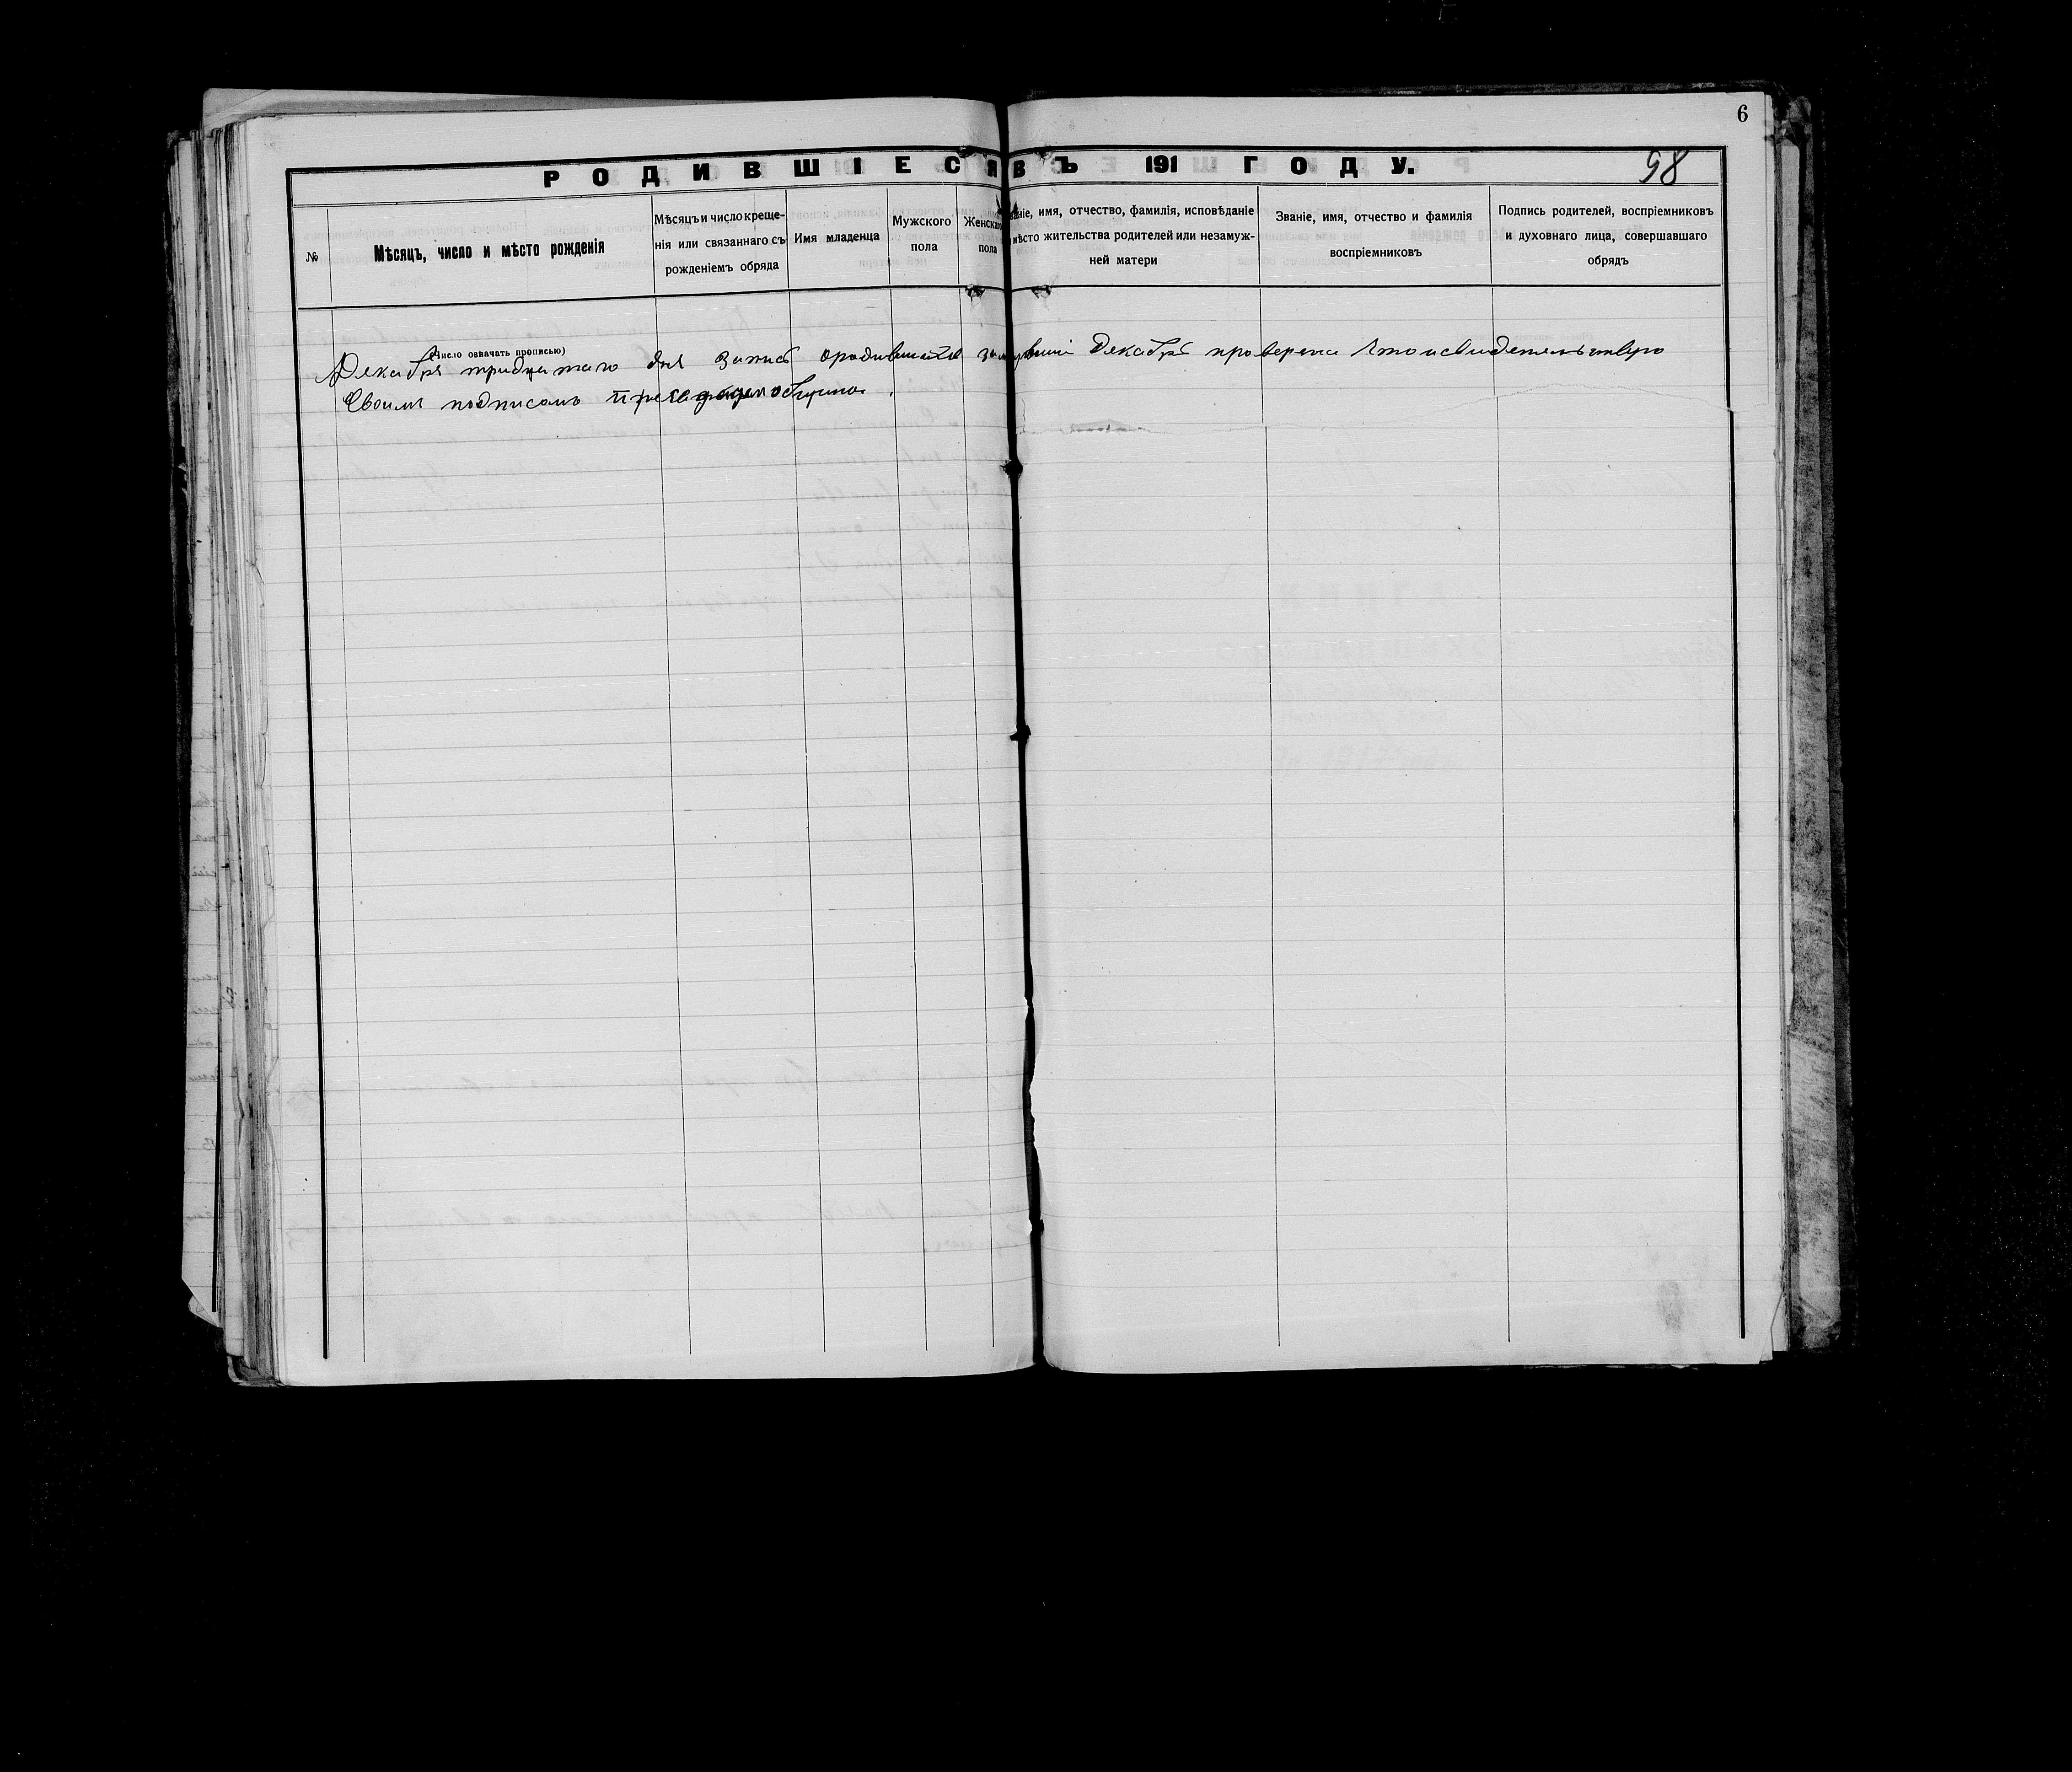 6
РОДИВШІЕСЯ ВЪ 191 ГОДУ.
98
№
Мѣсяцъ, число и мѣсто рожденія
Мѣсяцъ и число креще-
нія или связаннаго съ
рожденіемъ обряда
Имя младенца
Мужского
пола
Женскаго
пола
аніе, имя, отчество, фамилія, исповѣданіе
мѣсто жительства родителей или незамуж-
ней матери
Званіе, имя, отчество и фамилія
воспріемниковъ
Подпись родителей, воспріемниковъ
и духовнаго лица, совершавшаго
обрядъ
(Число означать прописью)
Декабря тридцатаго дня запись Декабрь проверена
Своимъ подписомъ
КНИГА